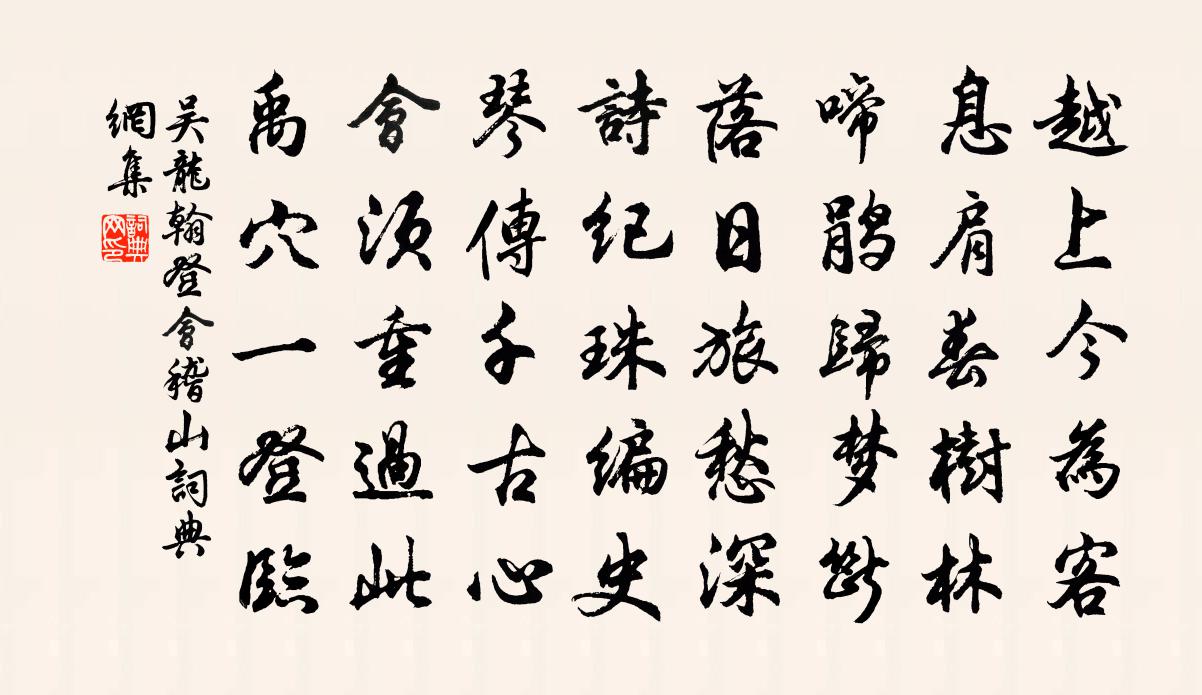 越上今為客
息肩春樹林
啼鹃歸梦斷
落日旅愁深
詩纪珠编史
琴傳千古心
會須重過此
禹穴一登臨
吴龍翰登會稽山詞典
網集
詞典
網印